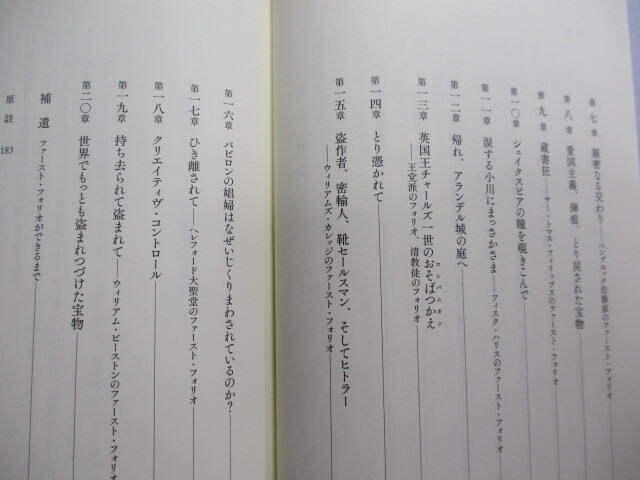 第七章 親密なる交わり――ペンブルック伯爵家のファースト・フォリオ
第八章 愛国主義、弾痕、とり戻された宝物
第九章 蔵書狂――サー・トマス・フィリップスのファースト・フォリオ
第一〇章 シェイクスピアの瞳を覗きこんで
第一一章 涙する小川にまっさかさま――フィスク・ハリスのファースト・フォリオ
第一二章 帰れ、アランデル城の庭へ
第一三章 英国王チャールズ一世のおそばつかえ
コンパニオン
――王党派のフォリオ、清教徒のフォリオ
第一四章 とり憑かれて
第一五章 盗作者、密輸人、靴セールスマン、そしてヒトラー
――ウィリアムズ・カレッジのファースト・フォリオ
第一六章 バビロンの娼婦はなぜいじくりまわされているのか?
第一七章 ひき離されて――ヘレフォード大聖堂のファースト・フォリオ
第一八章 クリエイティヴ・コントロール
第一九章 持ち去られて盗まれて――ウィリアム・ビーストンのファースト・フォリオ
第二〇章 世界でもっとも盗まれつづけた宝物
補遺 ファースト・フォリオができるまで
原註 183